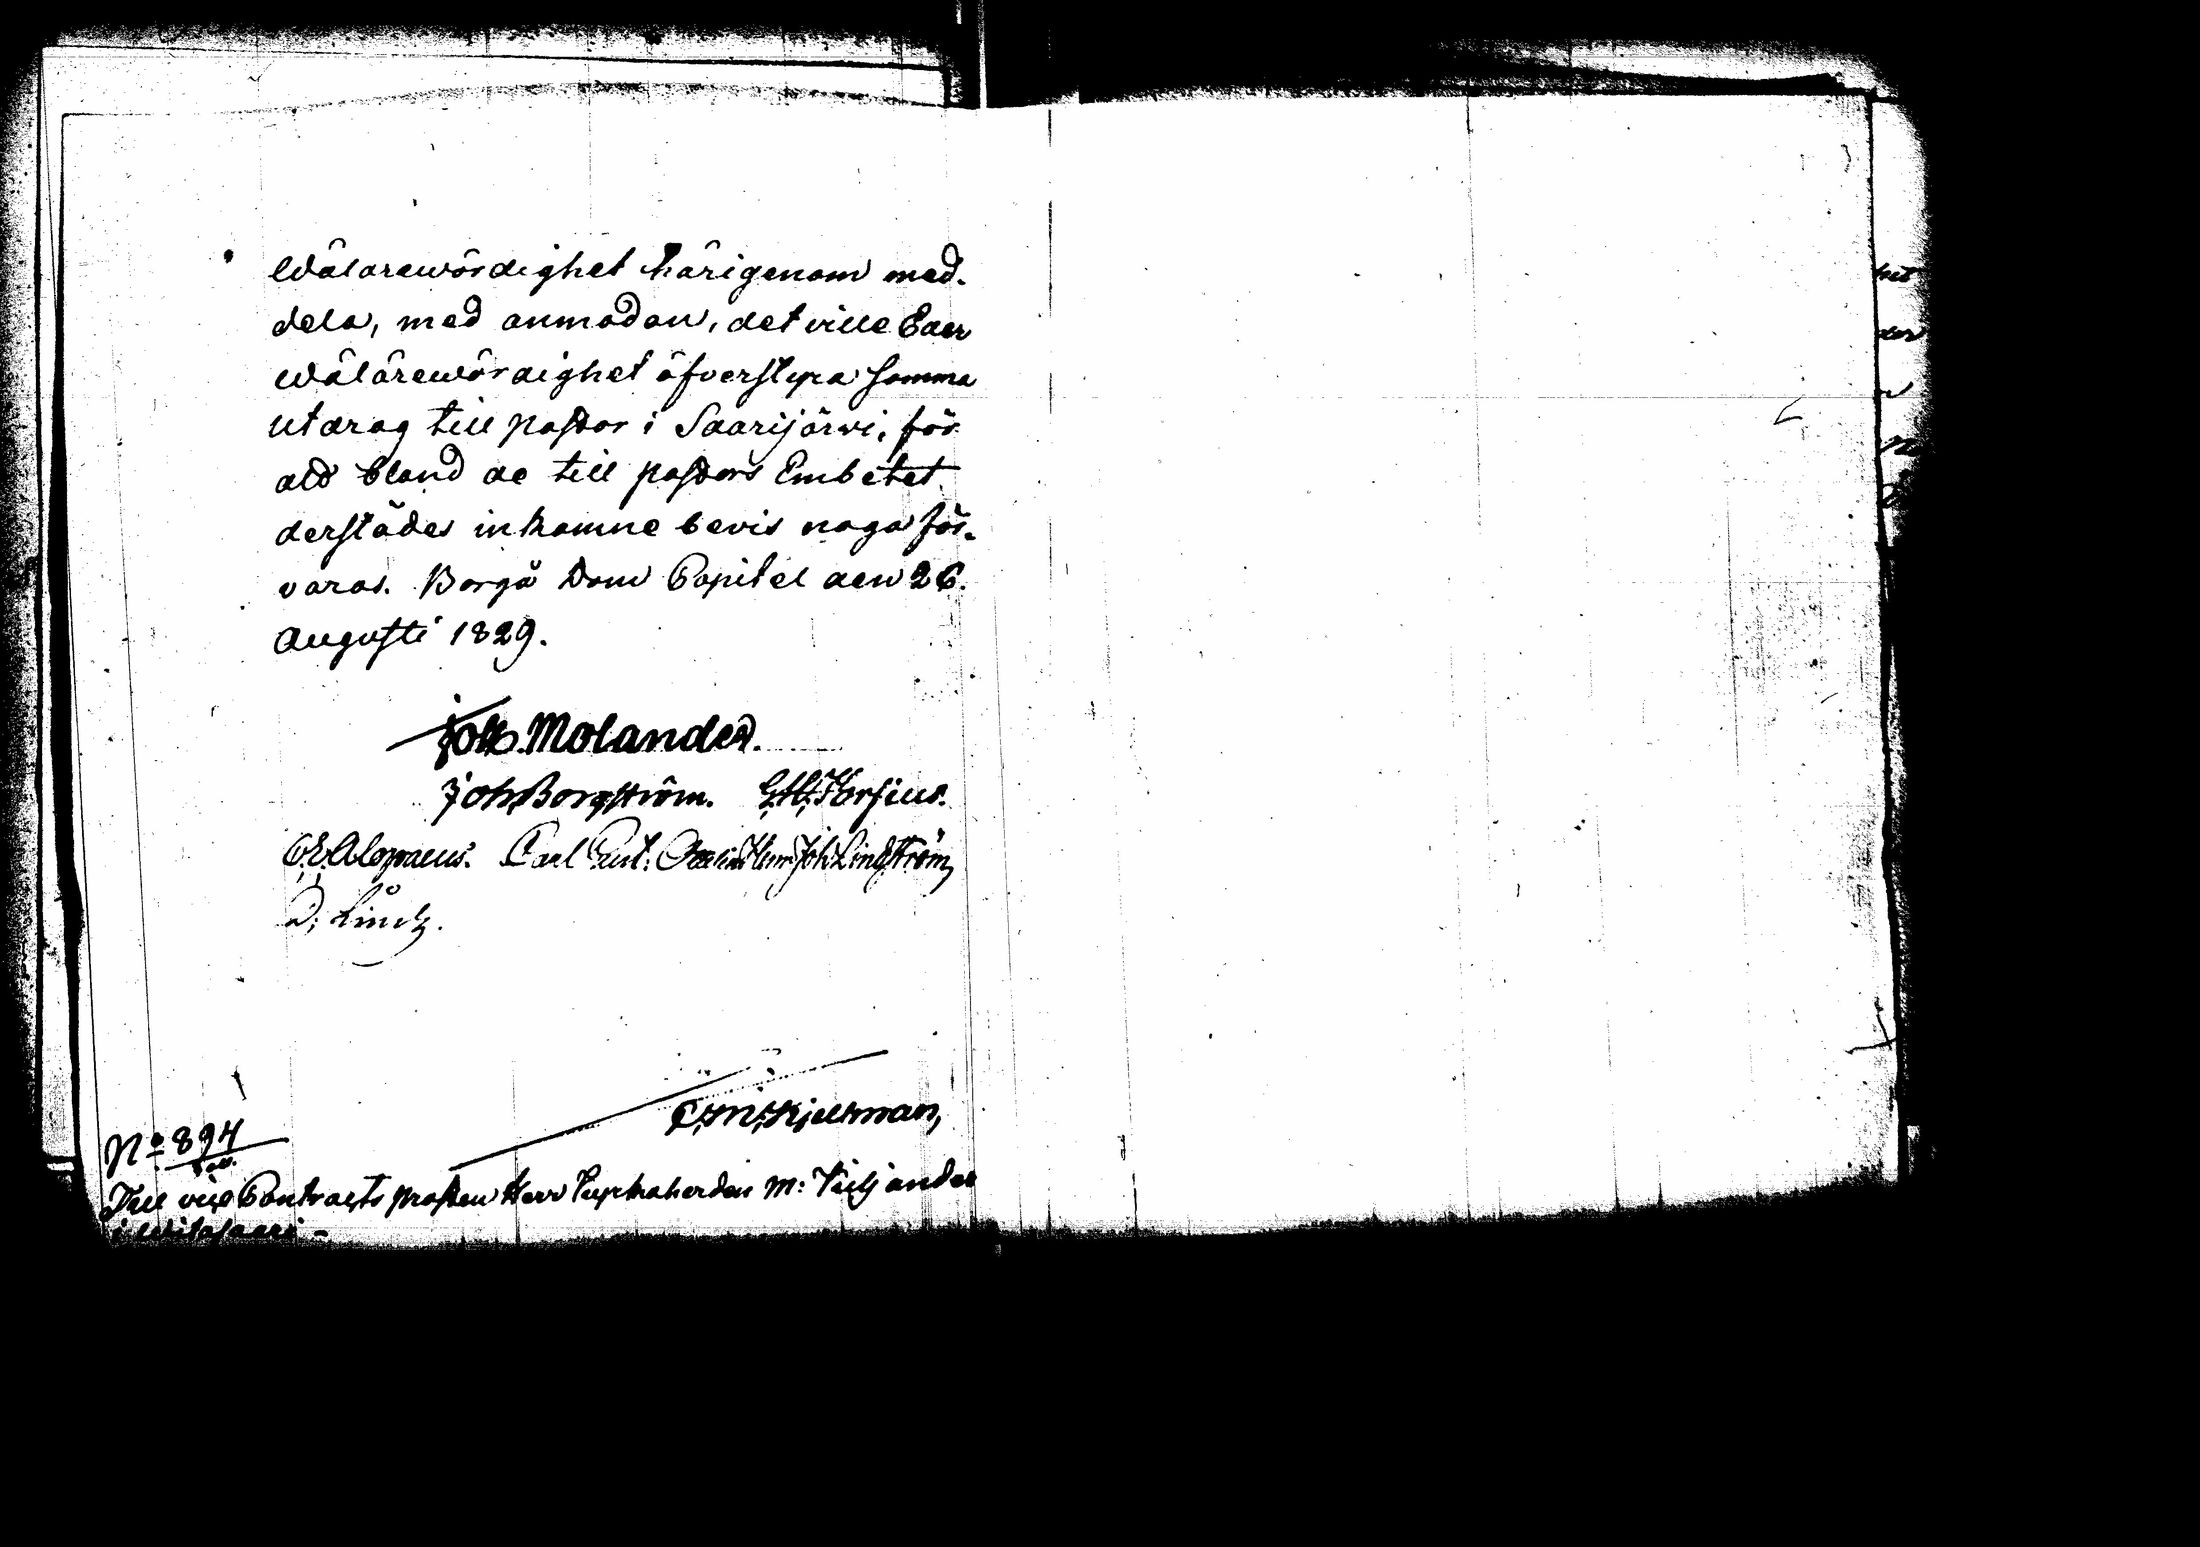 Wälärewördighet härigenom med-
dela, med anmodan, det ville Eder
Wälärewördighet öfverstyra samma
utdrag till pastor i Saarijärvi, för
att bland de till pastors Embetet
derstädes inkomne bevis noga för-
varas. Borgå Dom Capitel den 26.
Augusti 1829.
Joh. Molander.
Joh. Borgström. G. Alf. Forsius.
C. E. Alopaeus. Carl Gust. Joh. Lindström
D. Linck.
C. M. Kjellman,
No 894
Till vice Contracts prosten Herr Kyrkoherden M: Wiljander
i Witasaari -
het
der